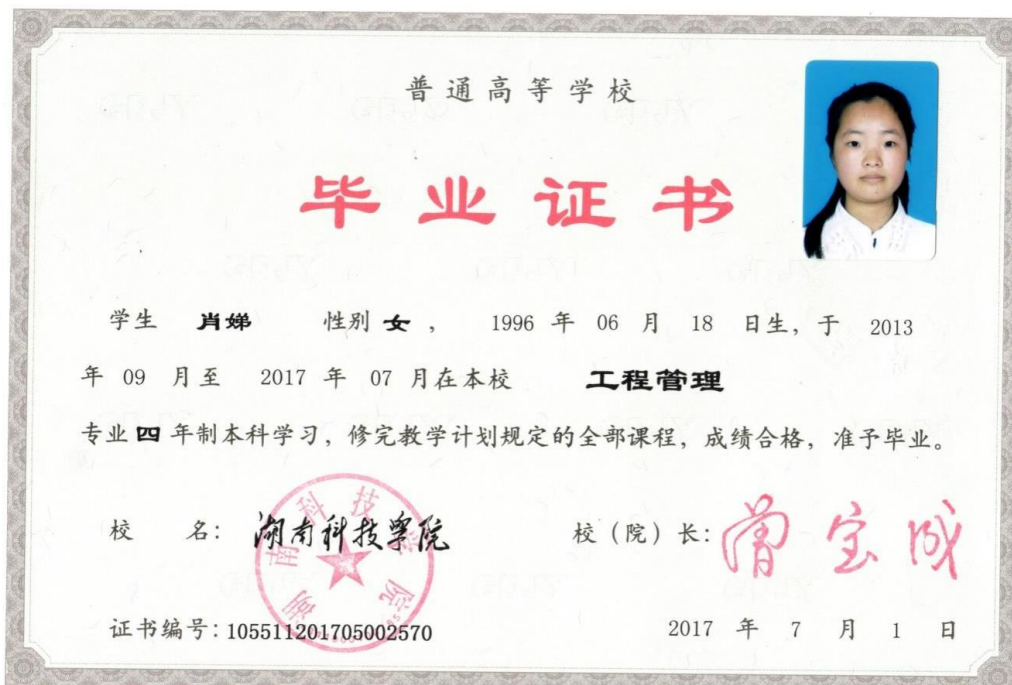 普通高等学校
毕业证书
学生 肖娣 性别 女 , 1996 年 06 月 18 日生, 于 2013
年 09 月至 2017 年 07 月在本校 工程管理
专业 四 年制本科学习, 修完教学计划规定的全部课程, 成绩合格, 准予毕业。
校 名: 湖南科技学院 校(院)长: 曾宝成
湖南科技学院
证书编号: 105511201705002570 2017 年 7 月 1 日